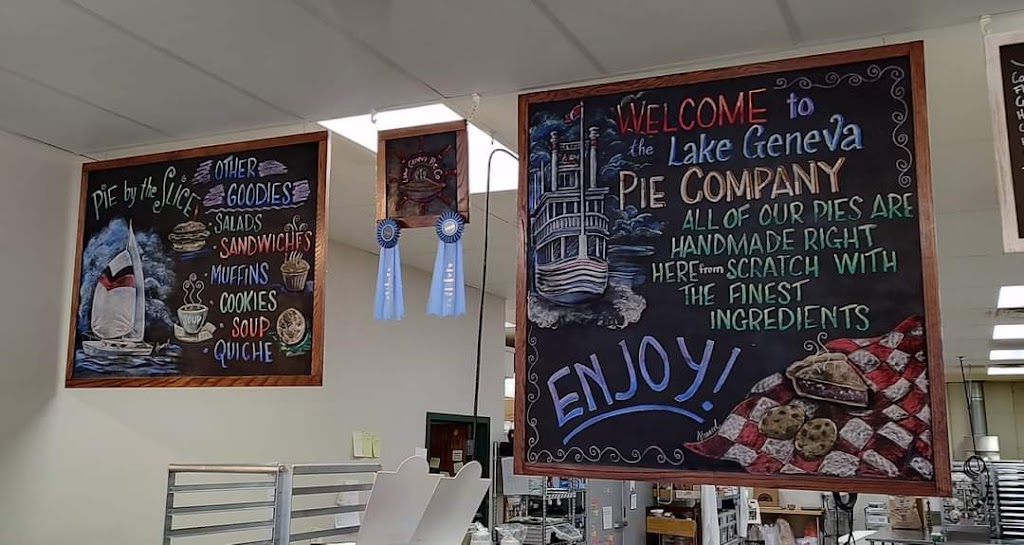 PIE by the SLICE
OTHER
GOODIES
SALADS
SANDWICHES
• MUFFINS
• COOKIES
• SOUP
• QUICHE
SOUP
WELCOME to
the Lake Geneva
PIE COMPANY
ALL OF OUR PIES ARE
HANDMADE RIGHT
HERE from SCRATCH WITH
THE FINEST
INGREDIENTS
ENJOY!